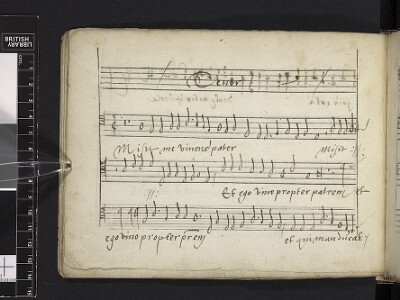 BRITISH LIBRARY
Tenor
Misit me vivens pater Misit :||:
:||: Et ego vivo propter patrem et
ego vivo propter prēm et qui manducat